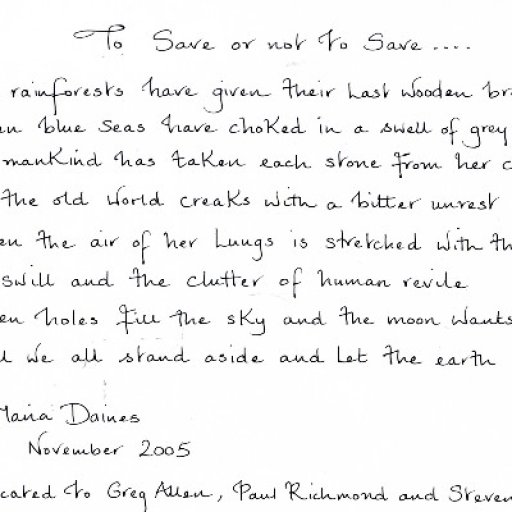 To Save or not to Save ....
rainforests have given their last wooden
blue seas have choked in a swell of grey
mankind has taken each stone from her
the old world creaks with a bitter unrest
the air of her lungs is stretched with
swill and the clutter of human revile
holes fill the sky and the moon wants
we all stand aside and let the earth
Maria Daines
November 2005
Greg Allen, Paul Richmond and Steven